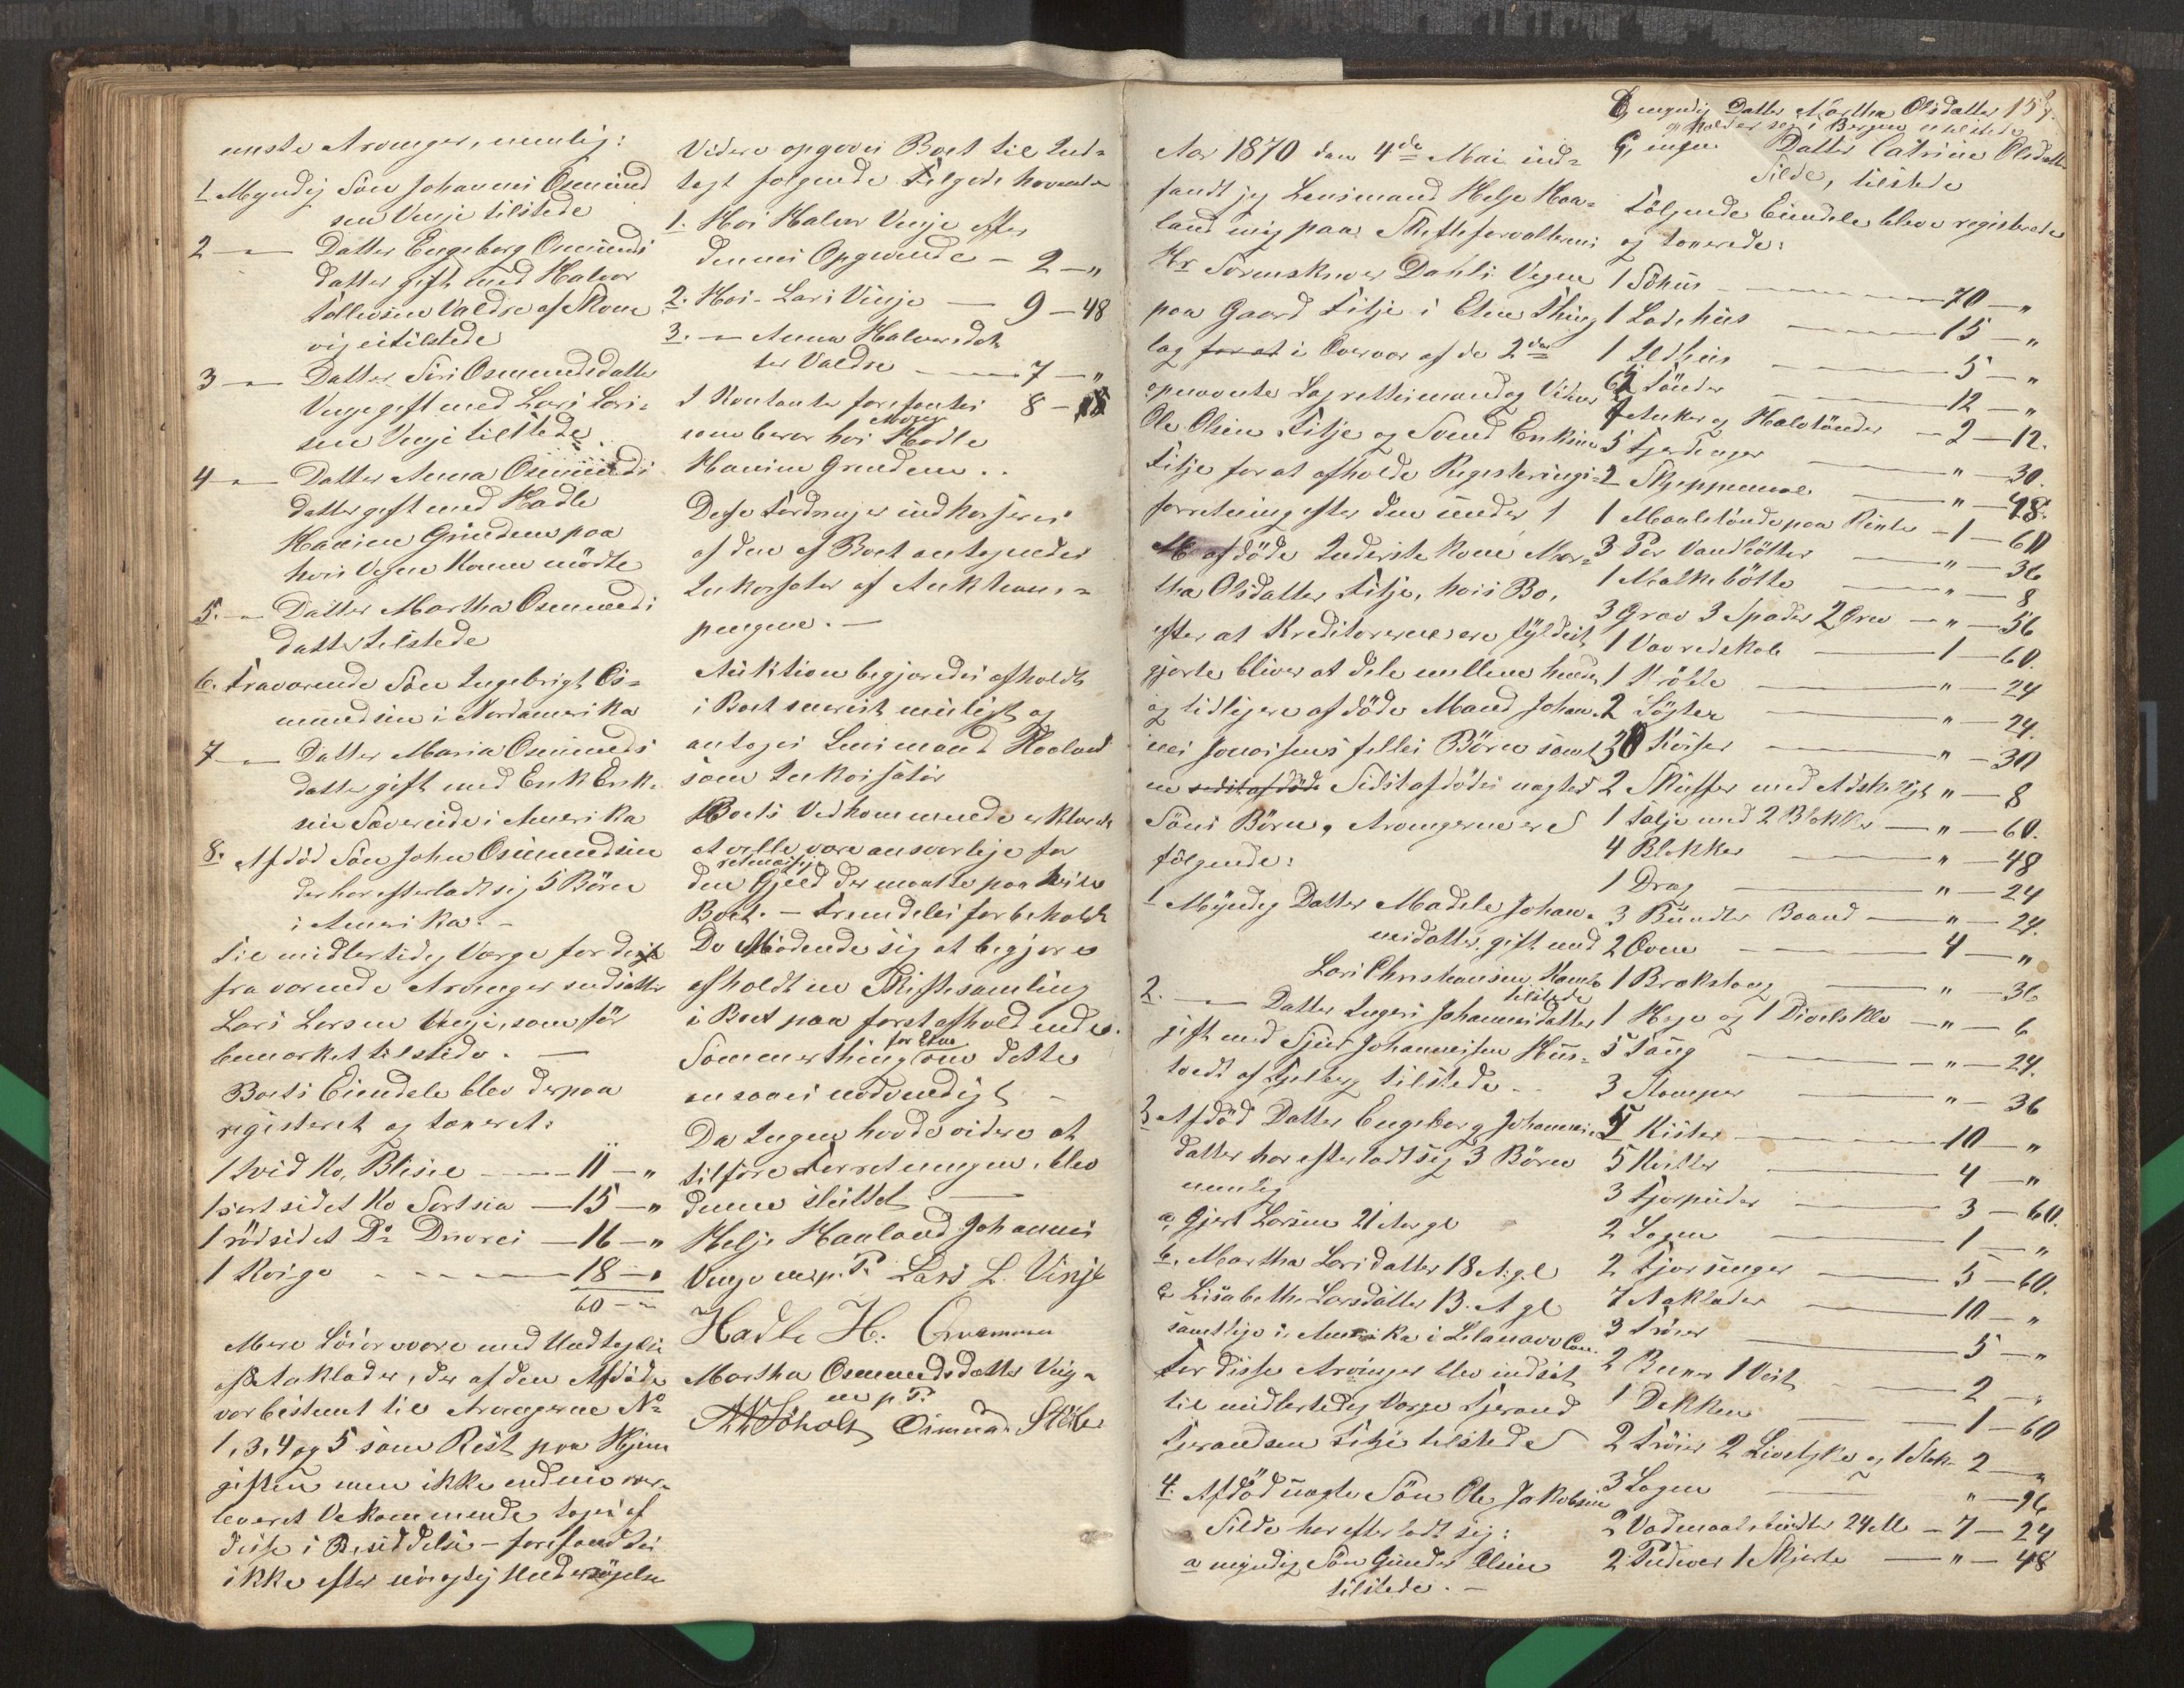 Arvinger, nemlig:
1. Myndig Søn Johannes Osmund
sen Vinje tilstede
2 — Datter Engeborg Osmunds
datter gift med Halvor
Tollevsen Valdre af Skone
vig ei tilstede
3 — Datter Siri Osmundsdatter
Vinje gift med Lars Lars-
sen Vinje tilstede
4 — Datter Anna Osmunds
datter gift med Hadle
Hansen Grindem paa
hvis Vegne Konen mødte
5. — Datter Martha Osmunds
datter tilstede
6. Fraværende Søn Ingebrigt Os-
mundsen i Nordamerika
7 — Datter Maria Osmunds
datter gift med Erik Erik-
sen Sævereide i Amerika
8. Afdød Søn John Osmundsen
der har efterladt sig 5 Børn
i Amerika. -
Til midlertidig Værge for de
fraværende Arvinger indsattes
Lars Larsen Vinje, som før
bemærket tilstede. —
Boets Eiendele blev derpaa
registeret og taxeret:
1 hvid Ko, Blisie — 11 — "
1 sortsidet Ko Sortsia — 15 — "
1 rødsidet Do Drivrei — 16 — "
1 Kvige — 18 — "
60 — "
Mere Løsøre med Undtagelse
af 8 Aaklæder, der af den Afdøde
var bestemt til Arvingerne No
1, 3, 4 og 5 som Rest paa Hjem
giften men ikke endnu over-
leveret Vedkommende tages af
disse i Besiddelse - forefandtes
ikke efter nøiagtig Undersøgelse
Videre opgaves Boet til Ind-
tægt følgende Tilgodehavender
1. Hos Halvor Vinje efter
dennes Opgivende — 2 — "
2. Hos Lars Vinje — 9 — 48
3. — Anna Halvorsdat
ter Valdre — 7 — "
I Kontanter forefantes 8 —
som beror hos Hadle
Hansen Grindem . .
Disse Fordringer indkasseres
af den af Boet antagendes
Inkassator af Auktions-
pengene. —
Auktion begjæredes afholdt
i Boet snarest muligt og
antoges Lensmand Haaland
som Inkassator
Boets Vedkommende erklærede
at ville være ansvarlige for
retmæssig
den Gjeld der maatte paahvile
Boet. — Fremdeles forbeholdt
De Mødende sig at begjære
afholdt en Skiftesamling
i Boet paa førstafholdendes
for Etne
Sommerthing om dette
ansaaes nødvendigt —
Da Ingen havde videre at
tilføre Forretningen, blev
denne sluttet —
Helje Haaland Johannes
Vinje m.p.P. Lars L. Vinje
Hadle H.
Martha Osmundsdatter Vinje
m p P.
Osmund Støle
Aar 1870 den 4de Mai ind-
fandt jeg Lensmand Helje Haa-
land mig paa Skifteforvalterens
Hr Sorenskriver Dahls Vegne
paa Gaard Fitje i Etne Thing
lag for at i Overvær af de 2de
opnævnte Lagrettesmænd og Vidner
Ole Olsen Fitje og Svend Eriksen
Fitje for at afholde Registerings-
forretning efter den under 1
M afdøde Inderste Kone Mar-
tha Olsdatter Fitje, hvis Bo,
efter at Kreditorerne ere fyldest
gjorte bliver at dele mellem hendes
og tidligere afdøde Mand Johan-
nes Jonassens fælles Børn samt
en sidstafdøde Sidstafdødes uægte
Søns Børn, Arvingerne ere
følgende:
1 Myndig Datter Madele Johan-
nesdatter gift med
Lars Christiansen
tilstede
2. — Datter Inger Johannesdatter
gift med Sjur Johannessen Hus-
tvedt af Fjelberg tilstede —
3 Afdød Datter Engeborg Johannes
datter har efterladt sig 3 Børn
nemlig
a, Gjert Larsen 21 Aar gl
b, Martha Larsdatter 18 A. gl
c Lisabethe Larsdatter 13. A gl
samtlige i Amerika i Lelanavo Con.
For disse Arvinger blev indsat
til midlertidig Værge Tjerand
Tjerandsen Fitje tilstede
4. Afdød uægte Søn Ole Jakobsen
Silde har efterladt sig:
a myndig Søn Gunder Olsen
tilstede. —
b, myndig Datter Martha Olsdatter 19
opholder sig i Bergen
c, ungen Datter Catrine Olsdatter
Silde, tilstede
Følgende Eiendele bleve registerede
og taxerede:
1 Søhus — 70 — "
1 Ladehus — 15 — "
1 Ildhus — 5 — "
Tønder — 12 — "
Anker og Halvtønder — 2 — 12.
5 Fjerdinger — " — 30.
2 Skjeppemaal — " — 48.
1 Maaletønde paa — 1 — 60
3 Par Vandbøtter — " — 36
1 Malkebøtte — " — 8
3 Grev 3 Spader 2 Orv — " — 56
1 Vævredskab — 1 — 60.
1 — " — 24
2 — " — 24.
30 Kasser — " — 30
2 Skuffer med Adskilligt " — 8
1 Talje med 2 Blokker — " — 60.
4 Blokker — " — 48
1 Drag — " — 24
3 Bundter Baand — " — 24.
2 Ovne — 4 — "
1 Brækstang — " — 36
1 og 1 — " — 6
5 Tang — " — 24.
3 Stamper — " — 36
Kister — 10 — "
5 — 4 — "
3 Fjørpuder — 3 — 60.
2 Lagen — 1 — "
2 Fjørsenger — 5 — 60.
7 Aaklæder — 10 — "
3 Trøier — 5 — "
2 Buxer 1 Vest — 2 — "
1 Dækken — 1 — 60
2 Trøier 2 Livstykker og 1 2 — "
3 Lagen — " — 96
2 Vadmaalsbundter 24 Al — 7 — 24
2 1 Skjorte — " — 48